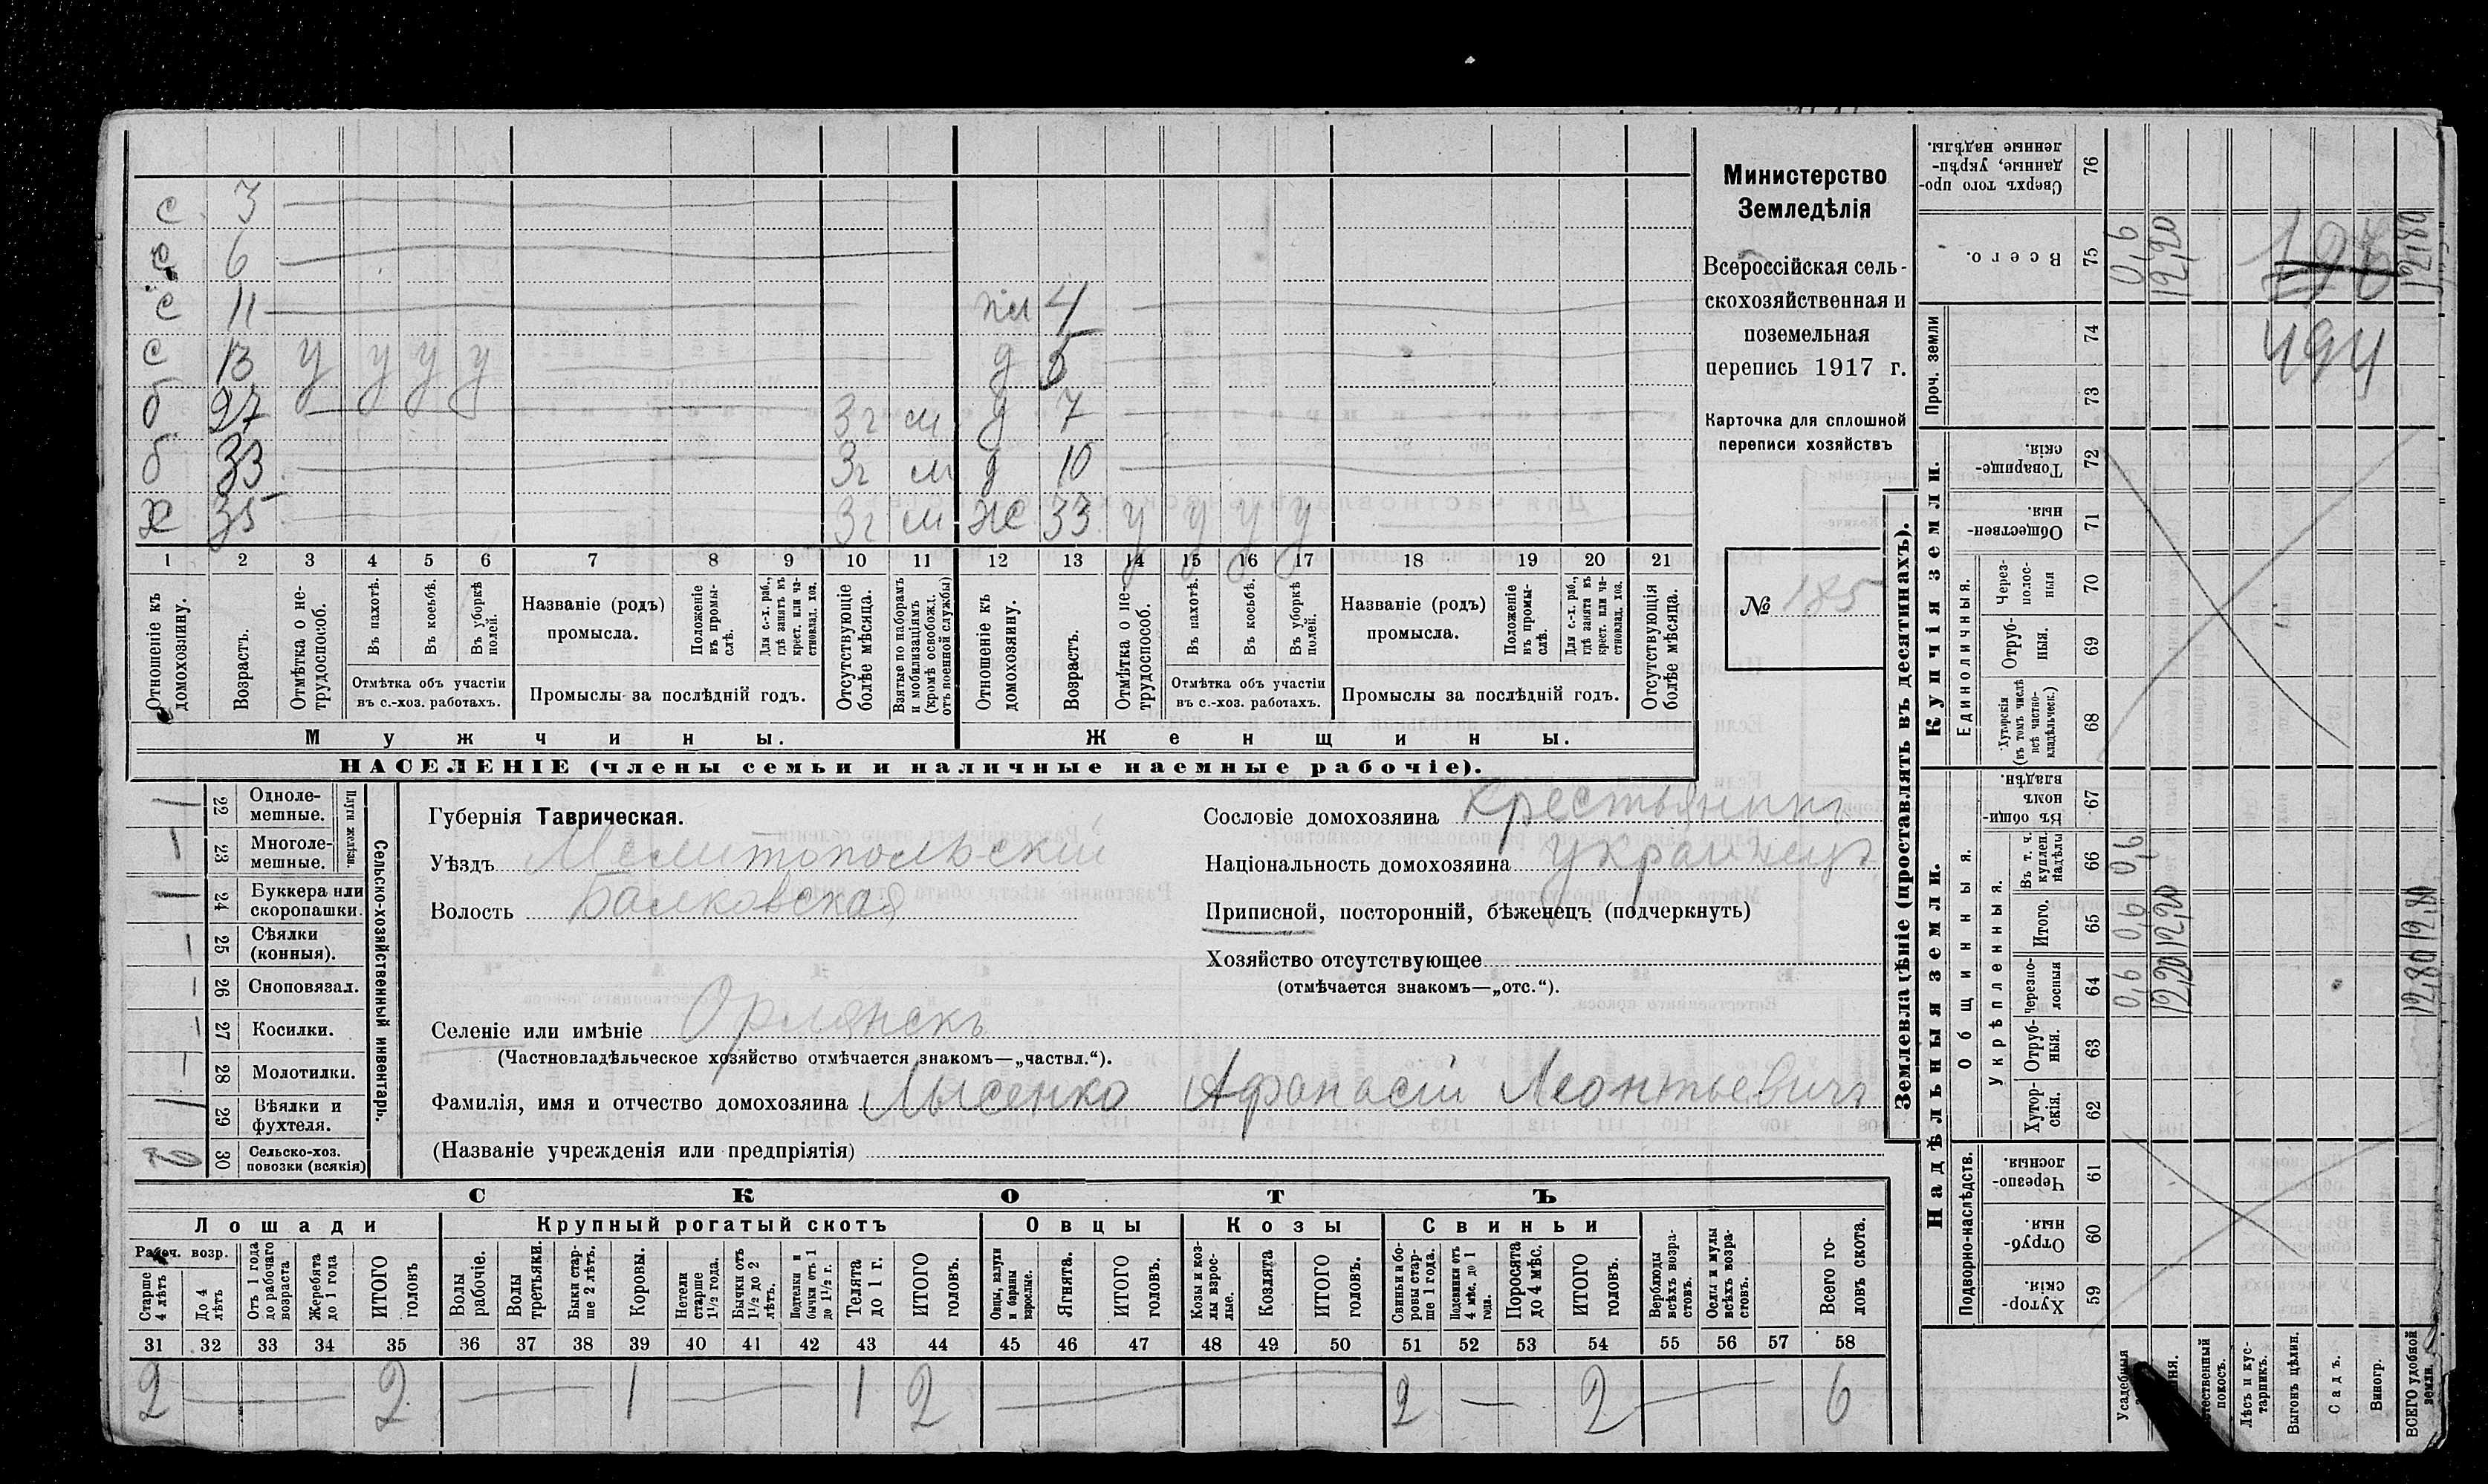 с 3
с 6
с 11 пл 4
с 13 у у у у д 5
б 27 3г м д 7
б 33 3г м д 10
х 35 3г м ж 33 у у у у
1 2 3 4 5 6 7 8 9 10 11 12 13 14 15 16 17 18 19 20 21
Отношеніе къ домохозяину.
Возрастъ.
Отмѣтка о нетрудоспособ.
Въ пахотѣ.
Въ косьбѣ.
Въ уборкѣ полей.
Отмѣтка объ участіи въ с.-хоз. работахъ.
Названіе (родъ) промысла.
Положеніе въ промыслѣ.
Для с.-х. раб., гдѣ занятъ въ крест. или частновлад. хоз.
Промыслы за послѣдній годъ.
Отсутствующіе болѣе мѣсяца.
Взятые по наборамъ и мобилизаціямъ (кромѣ освобожд. отъ военной службы)
Отношеніе къ домохозяину.
Возрастъ.
Отмѣтка о нетрудоспособ.
Въ пахотѣ.
Въ косьбѣ.
Въ уборкѣ полей.
Отмѣтка объ участіи въ с.-хоз. работахъ.
Названіе (родъ) промысла.
Положеніе въ промыслѣ.
Для с.-х. раб., гдѣ занята въ крест. или частновлад. хоз.
Промыслы за послѣдній годъ.
Отсутствующія болѣе мѣсяца.
Мужчины.
Женщины.
НАСЕЛЕНІЕ (члены семьи и наличные наемные рабочіе).
Министерство
Земледѣлія
Всероссійская сель-
скохозяйственная и
поземельная
перепись 1917 г.
Карточка для сплошной
переписи хозяйствъ
№ 185
Плуги желѣз.
22 Одноле-мешные.
23 Многоле-мешные.
24 Буккера или скоропашки.
25 Сѣялки (конныя).
26 Сноповязал.
27 Косилки.
28 Молотилки.
29 Вѣялки и фухтеля.
30 Сельско-хоз. повозки (всякія)
Сельско-хозяйственный инвентарь.
Губернія Таврическая.
Уѣздъ Мелитопольскій
Волость Балковская
Селеніе или имѣніе Орлянскъ
(Частновладѣльческое хозяйство отмѣчается знакомъ—„частвл.“).
Фамилія, имя и отчество домохозяина Лысенко Афанасій Леонтьевичъ
(Названіе учрежденія или предпріятія)
Сословіе домохозяина Крестьянинъ
Національность домохозяина украинецъ
Приписной, посторонній, бѣженецъ (подчеркнуть)
Хозяйство отсутствующее
(отмѣчается знакомъ—„отс.“).
СКОТЪ
Лошади
Крупный рогатый скотъ
Овцы
Козы
Свиньи
Рабоч. возр.
Старше 4 лѣтъ
До 4 лѣтъ
Отъ 1 года до рабочаго возраста
Жеребята до 1 года
ИТОГО головъ
Волы рабочіе.
Волы третьяки.
Быки старше 2 лѣтъ.
Коровы.
Нетели старше 1½ года.
Бычки отъ 1½ до 2 лѣтъ.
Подтелки и бычки отъ 1 до 1½ г.
Телята до 1 г.
ИТОГО головъ.
Овцы, валухи и бараны взрослые.
Ягнята.
ИТОГО головъ.
Козы и козлы взрослые.
Козлята
ИТОГО головъ.
Свиньи и боровы старше 1 года.
Подсвинки отъ 4 мѣс. до 1 года.
Поросята до 4 мѣс.
ИТОГО головъ.
Верблюды всѣхъ возрастовъ.
Ослы и мулы всѣхъ возрастовъ.
Всего головъ скота.
31 32 33 34 35 36 37 38 39 40 41 42 43 44 45 46 47 48 49 50 51 52 53 54 55 56 57 58
2 — 2 — 1 — 1 2 — 2 — 2 — 6
Землевладѣніе (проставлять въ десятинахъ).
Сверхъ того проданные, укрѣпленные надѣлы. 76
Всего. 75 0,6 12,20 12,80
494
Проч. земли
74
73
Купчія земли.
Товарищескія. 72
Общественныя. 71
Единоличныя.
Черезполосныя 70
Отрубныя. 69
Хуторскія (въ томъ числѣ всѣ частновладѣльческ.) 68
Надѣльныя земли.
Общинныя.
Въ общинномъ владѣн. 67
Укрѣпленныя.
Въ т. ч. куплен. надѣлы 66 0,6
Итого. 65 0,6 12,20 12,80
Черезполосныя 64 0,6 12,20 12,80
Отрубныя. 63
Хуторскія. 62
Подворно-наслѣдств.
Черезполосныя. 61
Отрубныя. 60
Хуторскія. 59
Усадебныя
Лѣсъ и кустарникъ.
Выгонъ цѣлин.
Садъ.
Виногр.
ВСЕГО удобной земли.